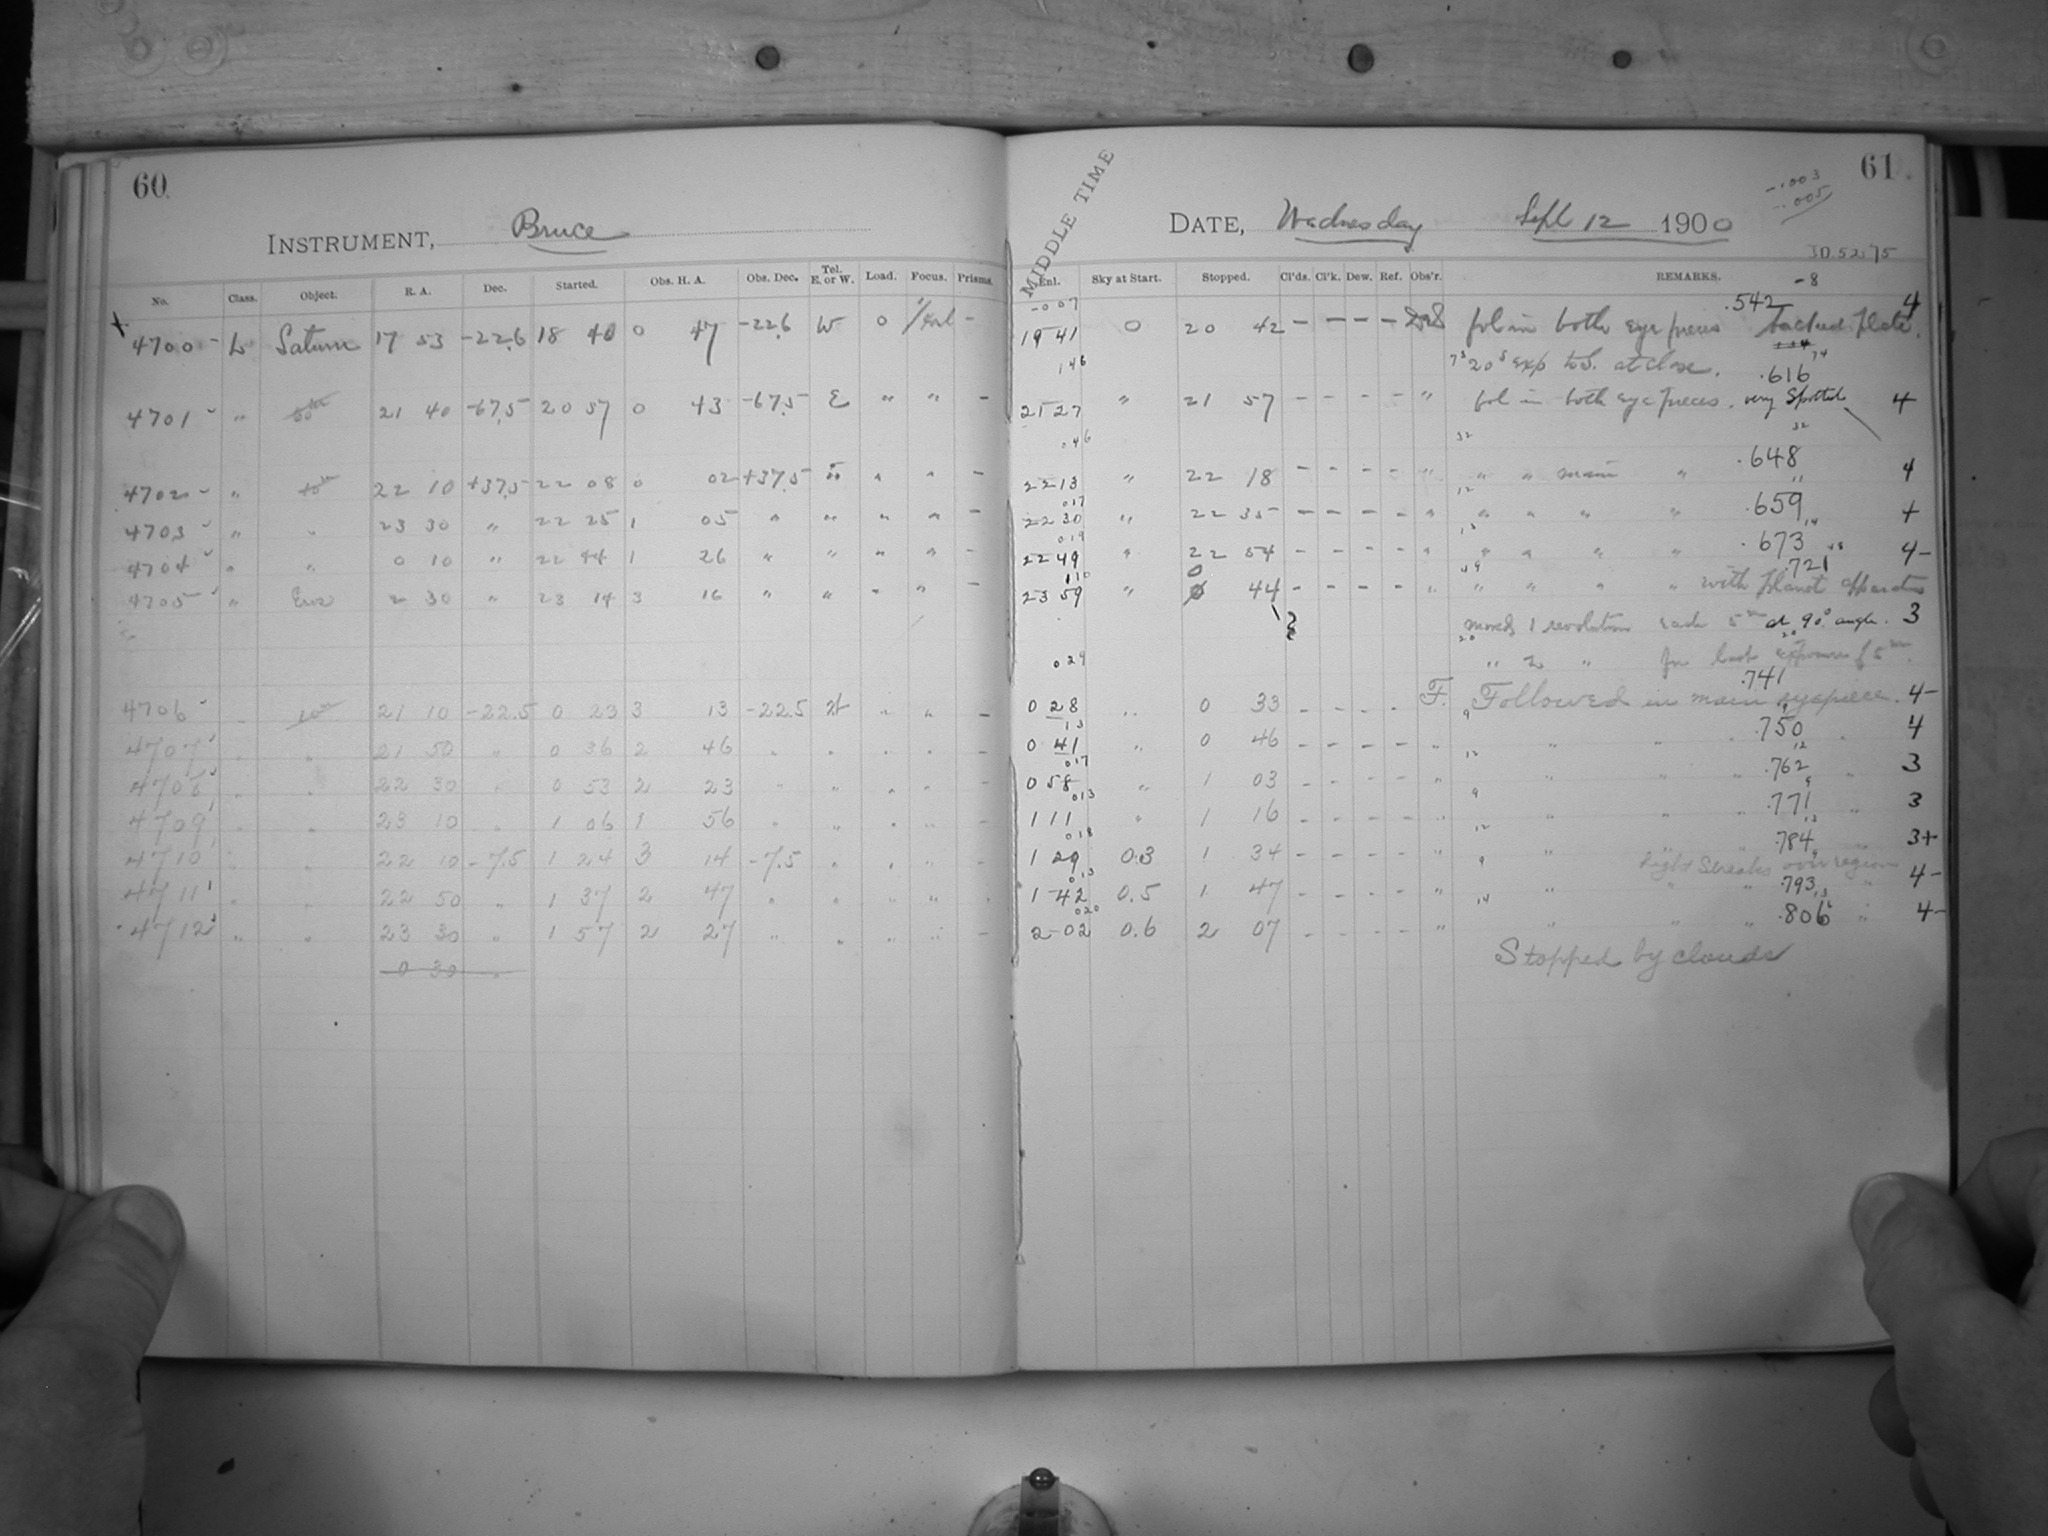 60
INSTRUMENT, Bruce
No. Class. Object. R. A. Dec. Started. Obs. H. A. Obs. Dec. Tel. E. or W. Load. Focus. Prisms.
4700 L Saturn 17 53 -22.6 18 40 0 47 -22.6 W 0 -
4701 " 21 40 -67.5 20 57 0 43 -67.5 E " " -
4702 " 22 10 +37.5 22 08 0 02 +37.5 " " " -
4703 " " 23 30 " 22 25 1 05 " " " " -
4704 " " 0 10 " 22 44 1 26 " " " " -
4705 " Eros 2 30 " 23 14 3 16 " " " " -
4706 " 21 10 -22.5 0 23 3 13 -22.5 " " -
4707 " " 21 50 " 0 36 2 46 " " " " -
4708 " " 22 30 " 0 53 2 23 " " " " -
4709 " " 23 10 " 1 06 1 56 " " " " -
4710 " " 22 10 -7.5 1 24 3 14 -7.5 " " " -
4711 " " 22 50 " 1 37 2 47 " " " " -
4712 " " 23 30 " 1 57 2 27 " " " " -
0 30 "
61
-.003
-.005
MIDDLE TIME
DATE, Wednesday Sept 12 1900
J.D. 5275
Enl. Sky at Start. Stopped. Cl'ds. Cl'k. Dew. Ref. Obs'r. REMARKS. -8
-007 .542 4
19 41 0 20 42 - - - - fol in both eye pieces backed plate.
146 20s exp to S. at close. 74
.616
21 27 " 21 57 - - - - " fol in both eye pieces. very Spotted 4
046 32 32
.648
22 13 " 22 18 - - - - " " " main " 4
017 12 11
22 30 " 22 35 - - - - " " " " " .659 +
019 15 14
22 49 " 22 54 - - - - " " " " " .673 4-
110 49 48
.721
23 59 " 0 44 - - - - " " " " " with planet apparatus
moved 1 revolution each 5m at 90° angle. 3
20 20
029 " 2 " for last exposure of 5m.
.741
0 28 " 0 33 - - - - F. Followed in main eyepiece. 4-
13 9 9
0 41 " 0 46 - - - - " " " .750 " 4
017 12 12
0 58 " 1 03 - - - - " " " .762 " 3
013 9 9
1 11 " 1 16 - - - - " " " .771 " 3
018 12 13
1 29 0.3 1 34 - - - - " " .784 " 3+
013 9 9
light Streaks over region
1 42 0.5 1 47 - - - - " " " " .793 " 4-
020 14 13
2 02 0.6 2 07 - - - - " " " " .806 " 4-
Stopped by clouds